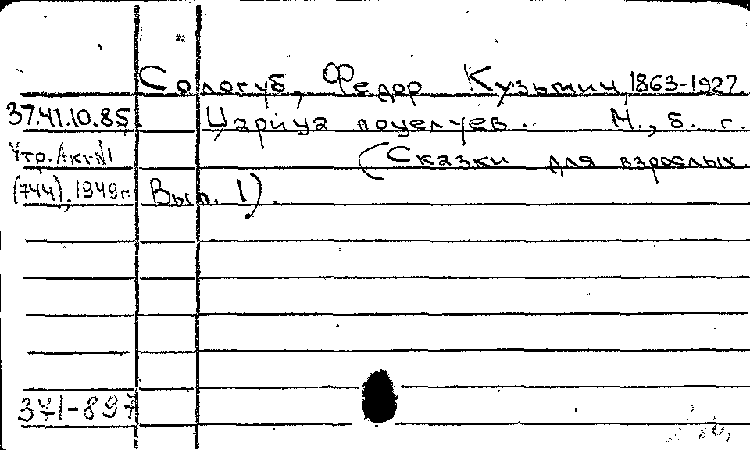 Сологуб, Федор Кузьмич 1863-1927
37.41.10.85 Царица поцелуев. М., б. г.
Утр. Акт №1 (Сказки для взрослых.
(744), 1949г. Вып. 1).
371-897